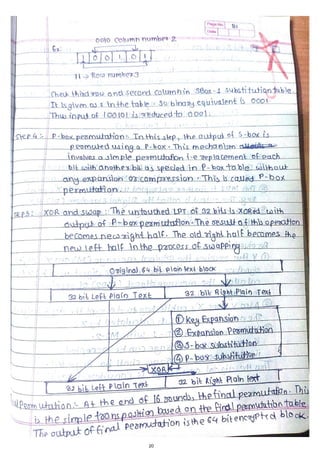 Page No. 31
Date
0010 column number 2
Ex:
1 0 0 1 0 1
11 → Row number 3
Check third row and second column in SBox-1 substitution table.
It is given as 1 in the table. So binary equivalent is 0001
Thus input of 100101 is reduced to 0001.
Step 4: P-box permutation: In this step, the output of S-box is
permuted using a P-box. This mechanism
involves a simple permutation i.e replacement of each
bit with another bit as specied in P-box table without
any expansion or compression. This is called P-box
permutation.
Step 5: XOR and swap: The untouched LPT of 32 bits is XORed with
output of P-box permutation. The result of this operation
becomes new right half. The old right half becomes the
new left half in the process of swapping
Original 64 bit plain text block
32 bit Left Plain Text 32 bit Right Plain Text
① Key Expansion
② Expansion Permutation
③ S-box substitution
④ P-box substitution
XOR
32 bit Left Plain Text 32 bit Right Plain text
Permutation:- At the end of 16 rounds, the final permutation. This
is the simple transposition based on the final permutation table
The output of final permutation is the 64 bit encrypted block.
20